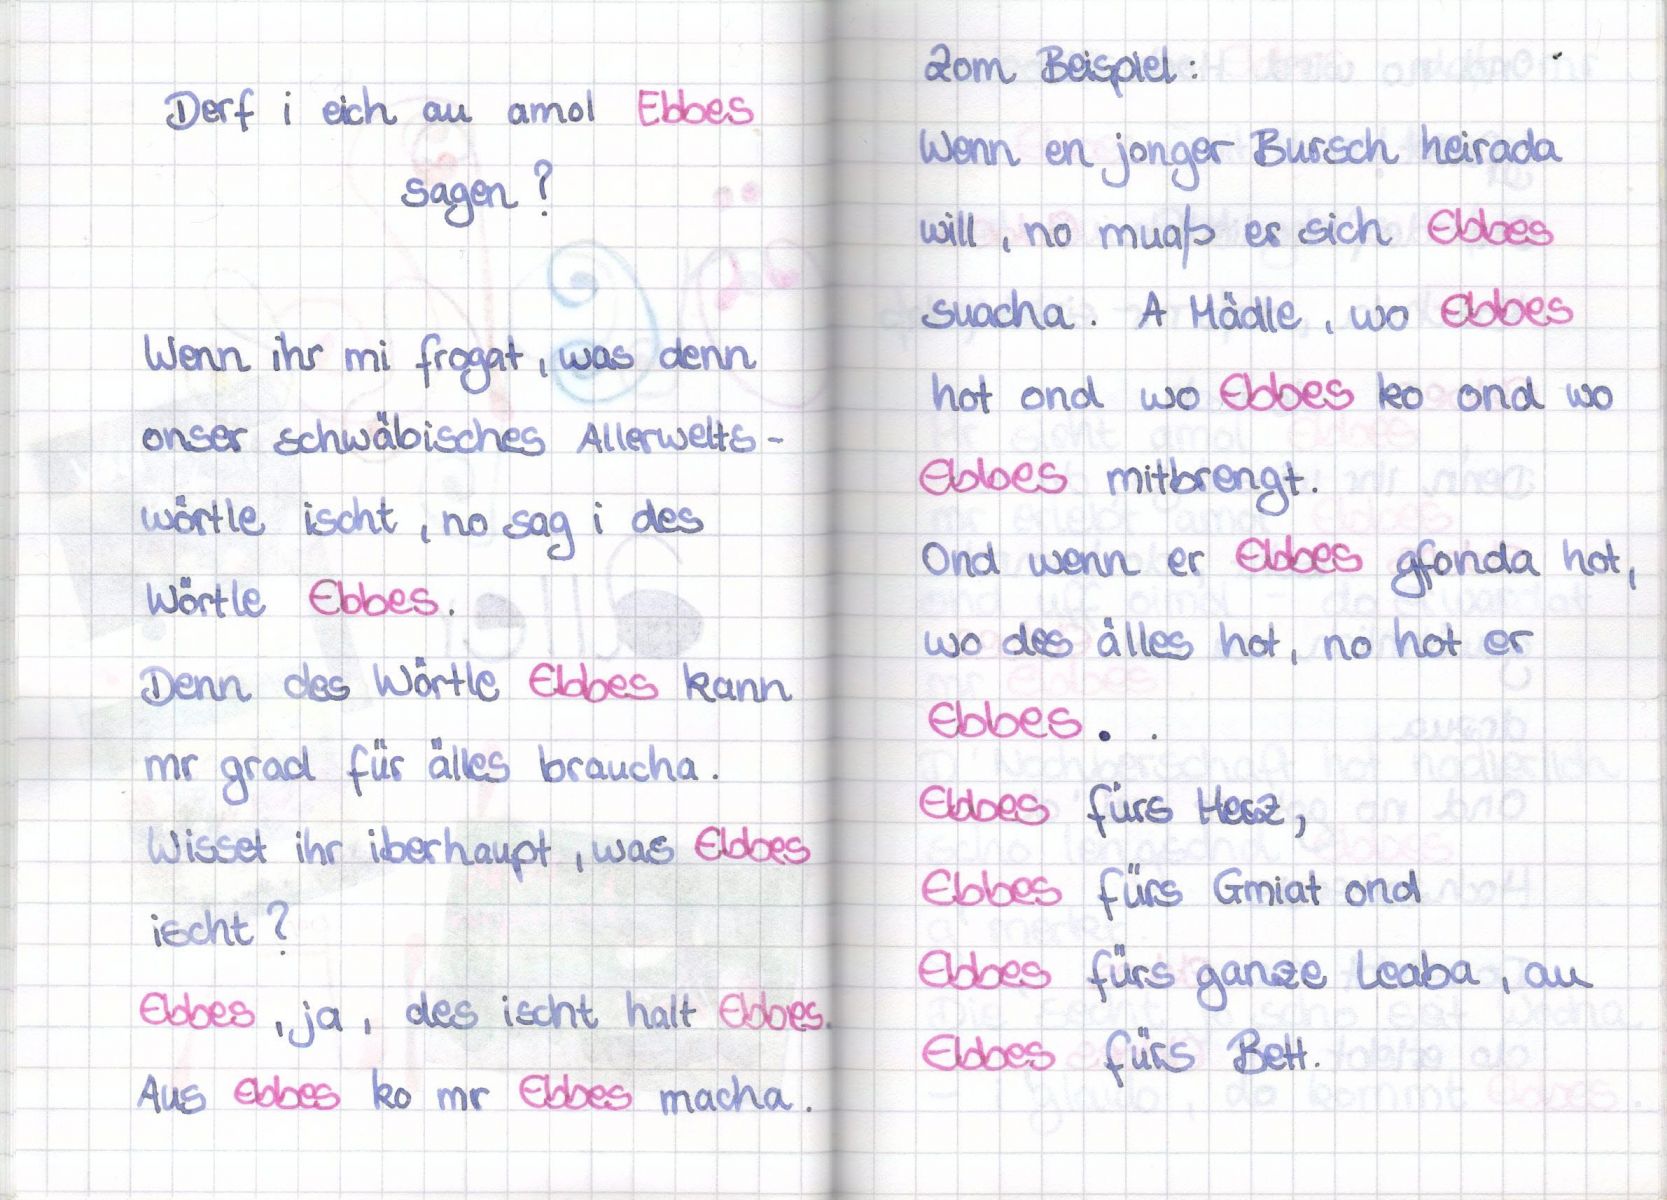 Derf i eich au amol Ebbes
sagen?
Wenn ihr mi frogat, was denn
onser schwäbisches Allerwelts-
wörtle ischt, no sag i des
Wörtle Ebbes.
Denn des Wörtle Ebbes kann
mr grad für älles braucha.
Wisset ihr iberhaupt, was Ebbes
ischt?
Ebbes, ja, des ischt halt Ebbes.
Aus Ebbes ko mr Ebbes macha.
Zom Beispiel:
Wenn en jonger Bursch heirada
will, no muaß er sich Ebbes
suacha. A Mädle, wo Ebbes
hot ond wo Ebbes ko ond wo
Ebbes mitbrengt.
Ond wenn er Ebbes gfonda hot,
wo des älles hot, no hot er
Ebbes.
Ebbes fürs Herz,
Ebbes fürs Gmiat ond
Ebbes fürs ganze Leaba, au
Ebbes fürs Bett.